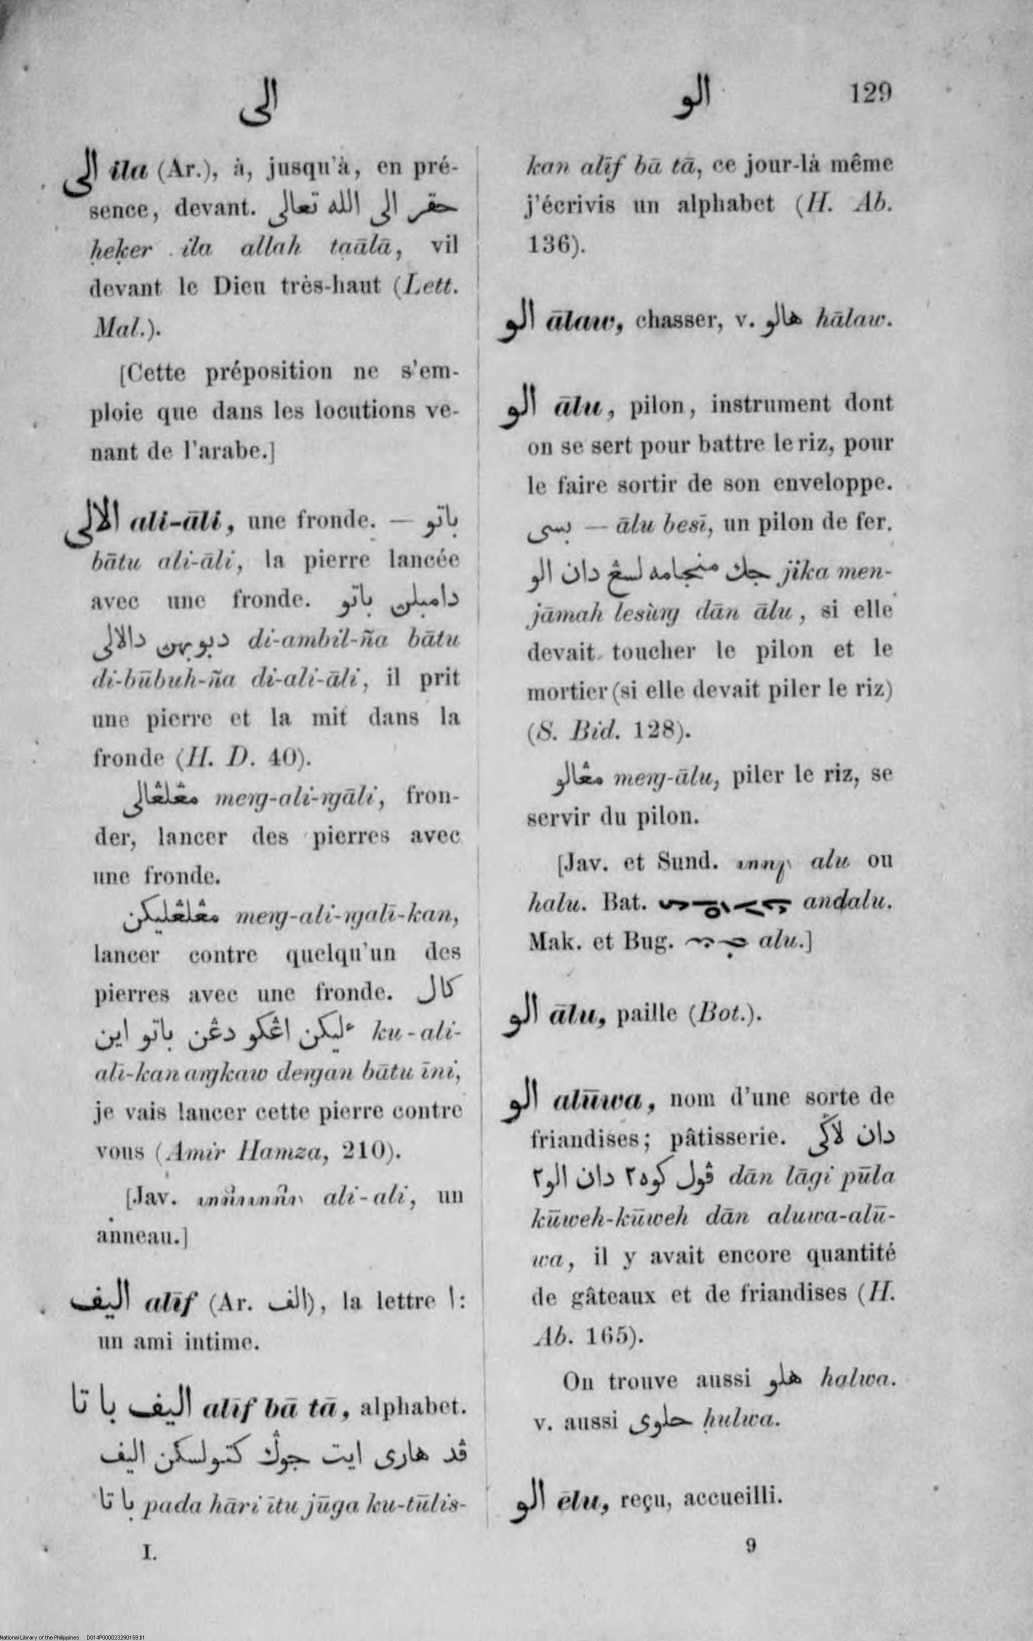 الى
الو
129
الى ila (Ar.), à, jusqu'à, en pré-
sence, devant. حقر الى الله تعالى
ḥeḳer ila allah taālā, vil
devant le Dieu très-haut (Lett.
Mal.).
[Cette préposition ne s'em-
ploie que dans les locutions ve-
nant de l'arabe.]
الالى ali-āli, une fronde. — باتو
bātu ali-āli, la pierre lancée
avec une fronde. دامبلن باتو
دبوبهن دالالى di-ambil-ña bātu
di-būbuh-ña di-ali-āli, il prit
une pierre et la mit dans la
fronde (H. D. 40).
مڠلڠالى meng-ali-ngāli, fron-
der, lancer des pierres avec
une fronde.
مڠلڠليكن meng-ali-ngalī-kan,
lancer contre quelqu'un des
pierres avec une fronde. كال
ءليكن اڠكو دڠن باتو اين ku-ali-
alī-kan angkaw dengan bātu īni,
je vais lancer cette pierre contre
vous (Amir Hamza, 210).
[Jav. ali-ali, un
anneau.]
اليف alīf (Ar. الف), la lettre ا:
un ami intime.
اليف با تا alīf bā tā, alphabet.
ڤد هارى ايت جوݢ كتولسكن اليف
با تا pada hāri ītu jūga ku-tūlis-
I.
kan alīf bā tā, ce jour-là même
j'écrivis un alphabet (H. Ab.
136).
الو ālaw, chasser, v. هالو hālaw.
الو ālu, pilon, instrument dont
on se sert pour battre le riz, pour
le faire sortir de son enveloppe.
بسى — ālu besī, un pilon de fer.
جك منجامه لسڠ دان الو jīka men-
jāmah lesùng dān ālu, si elle
devait toucher le pilon et le
mortier (si elle devait piler le riz)
(S. Bid. 128).
مڠالو meng-ālu, piler le riz, se
servir du pilon.
[Jav. et Sund. alu ou
halu. Bat. andalu.
Mak. et Bug. alu.]
الو ālu, paille (Bot.).
الو alūwa, nom d'une sorte de
friandises; pâtisserie. دان لاݢى
ڤول كوه٢ دان الو٢ dān lāgi pūla
kūweh-kūweh dān aluwa-alū-
wa, il y avait encore quantité
de gâteaux et de friandises (H.
Ab. 165).
On trouve aussi هلو halwa.
v. aussi حلوى ḥulwa.
الو ēlu, reçu, accueilli.
9
National Library of the Philippines